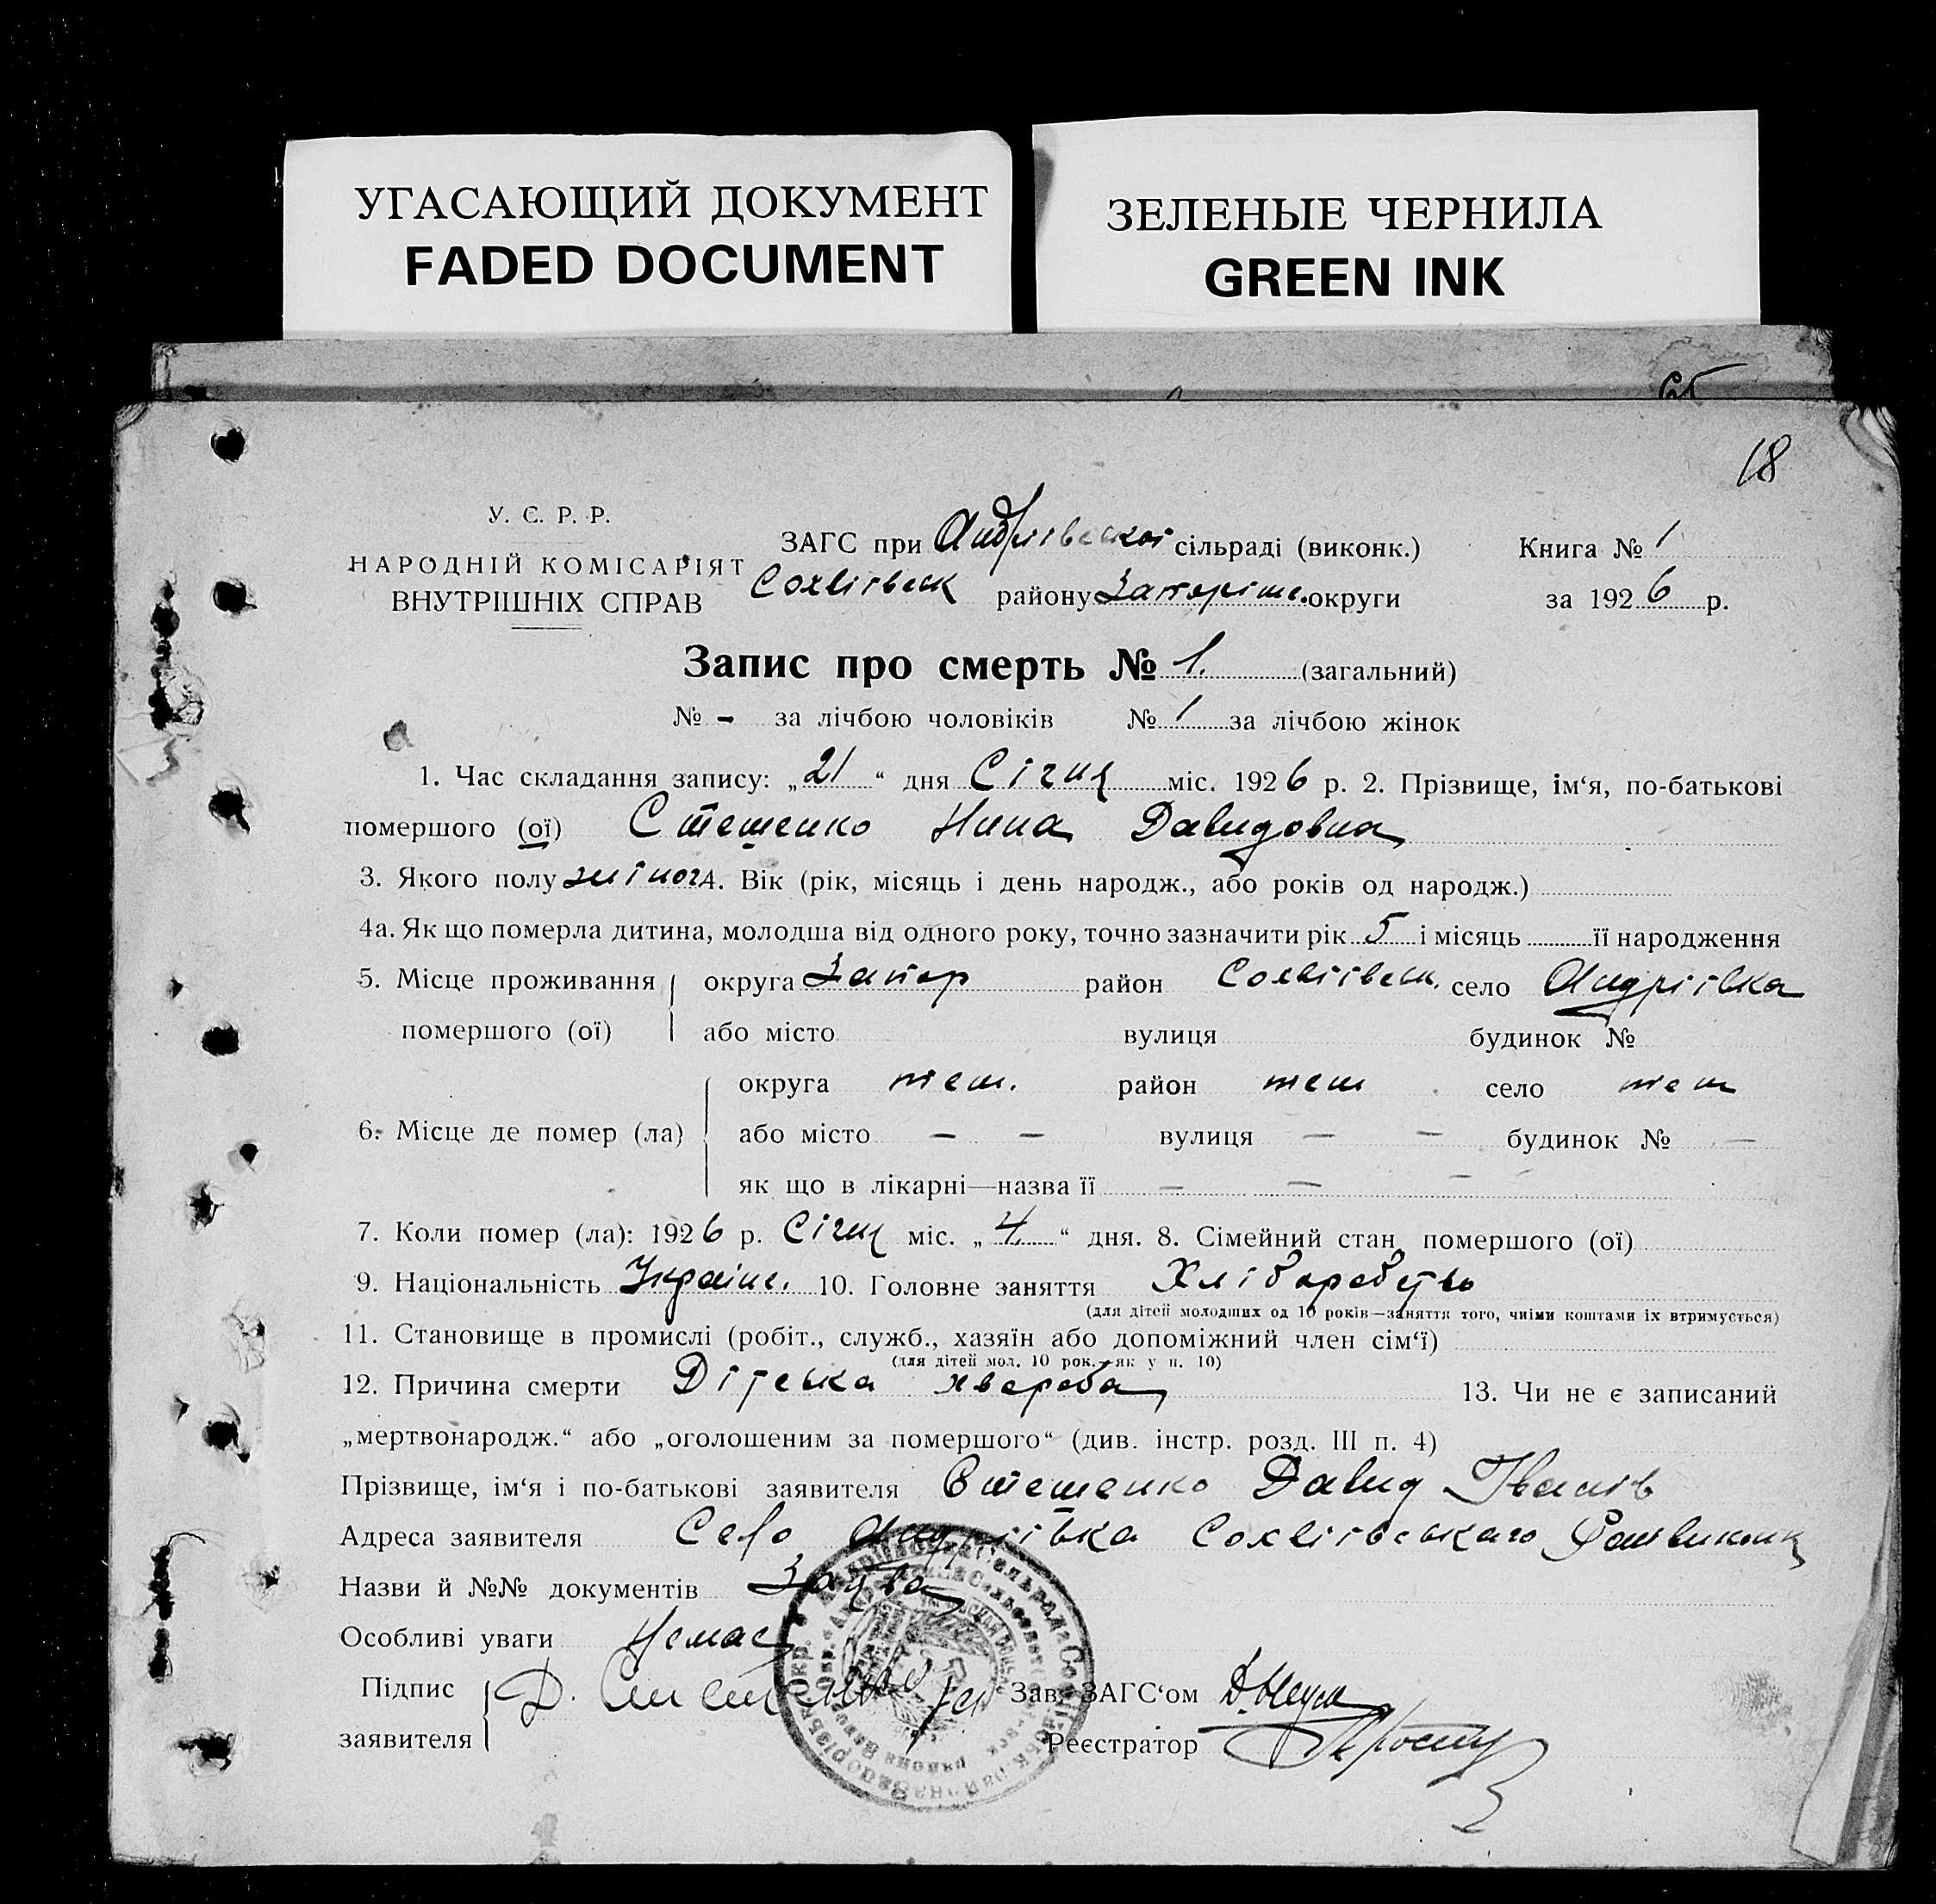 УГАСАЮЩИЙ ДОКУМЕНТ
FADED DOCUMENT
ЗЕЛЕНЫЕ ЧЕРНИЛА
GREEN INK
18
У. С. Р. Р.
НАРОДНІЙ КОМІСАРІЯТ
ВНУТРІШНІХ СПРАВ
ЗАГС при Андріївскої сільраді (виконк.)
району Запоріж. округи
Книга № 1
за 1926 р.
Запис про смерть № 1. (загальний)
№ - за лічбою чоловіків № 1 за лічбою жінок
1. Час складання запису: „21“ дня Січня міс. 1926 р. 2. Прізвище, ім‘я, по-батькові
помершого (ої) Стешенко Нина Давидовна
3. Якого полу жіног 4. Вік (рік, місяць і день народж., або років од народж.)
4а. Як що померла дитина, молодша від одного року, точно зазначити рік 5 і місяць її народження
5. Місце проживання помершого (ої) округа Запор район село Андріівка
або місто вулиця будинок №
6. Місце де помер (ла) округа теж. район теж село теж
або місто — — вулиця — — будинок № —
як що в лікарні—назва її — — —
7. Коли помер (ла): 1926 р. Січня міс. „4“ дня. 8. Сімейний стан помершого (ої)
9. Національність Україн. 10. Головне заняття Хліборобство
(для дітей молодших од 10 років—заняття того, чиїми коштами їх втримується)
11. Становище в промислі (робіт., служб., хазяїн або допоміжний член сім‘ї)
(для дітей мол. 10 рок.—як у п. 10)
12. Причина смерти Дітська хвороба 13. Чи не є записаний
„мертвонародж.“ або „оголошеним за помершого“ (див. інстр. розд. III п. 4)
Прізвище, ім‘я і по-батькові заявителя Стешенко Давид Іванів
Адреса заявителя Село Андріівка
Назви й №№ документів Заява
Особливі уваги Немає
Підпис заявителя Д. Стешенко
Зав. ЗАГС‘ом
Реєстратор